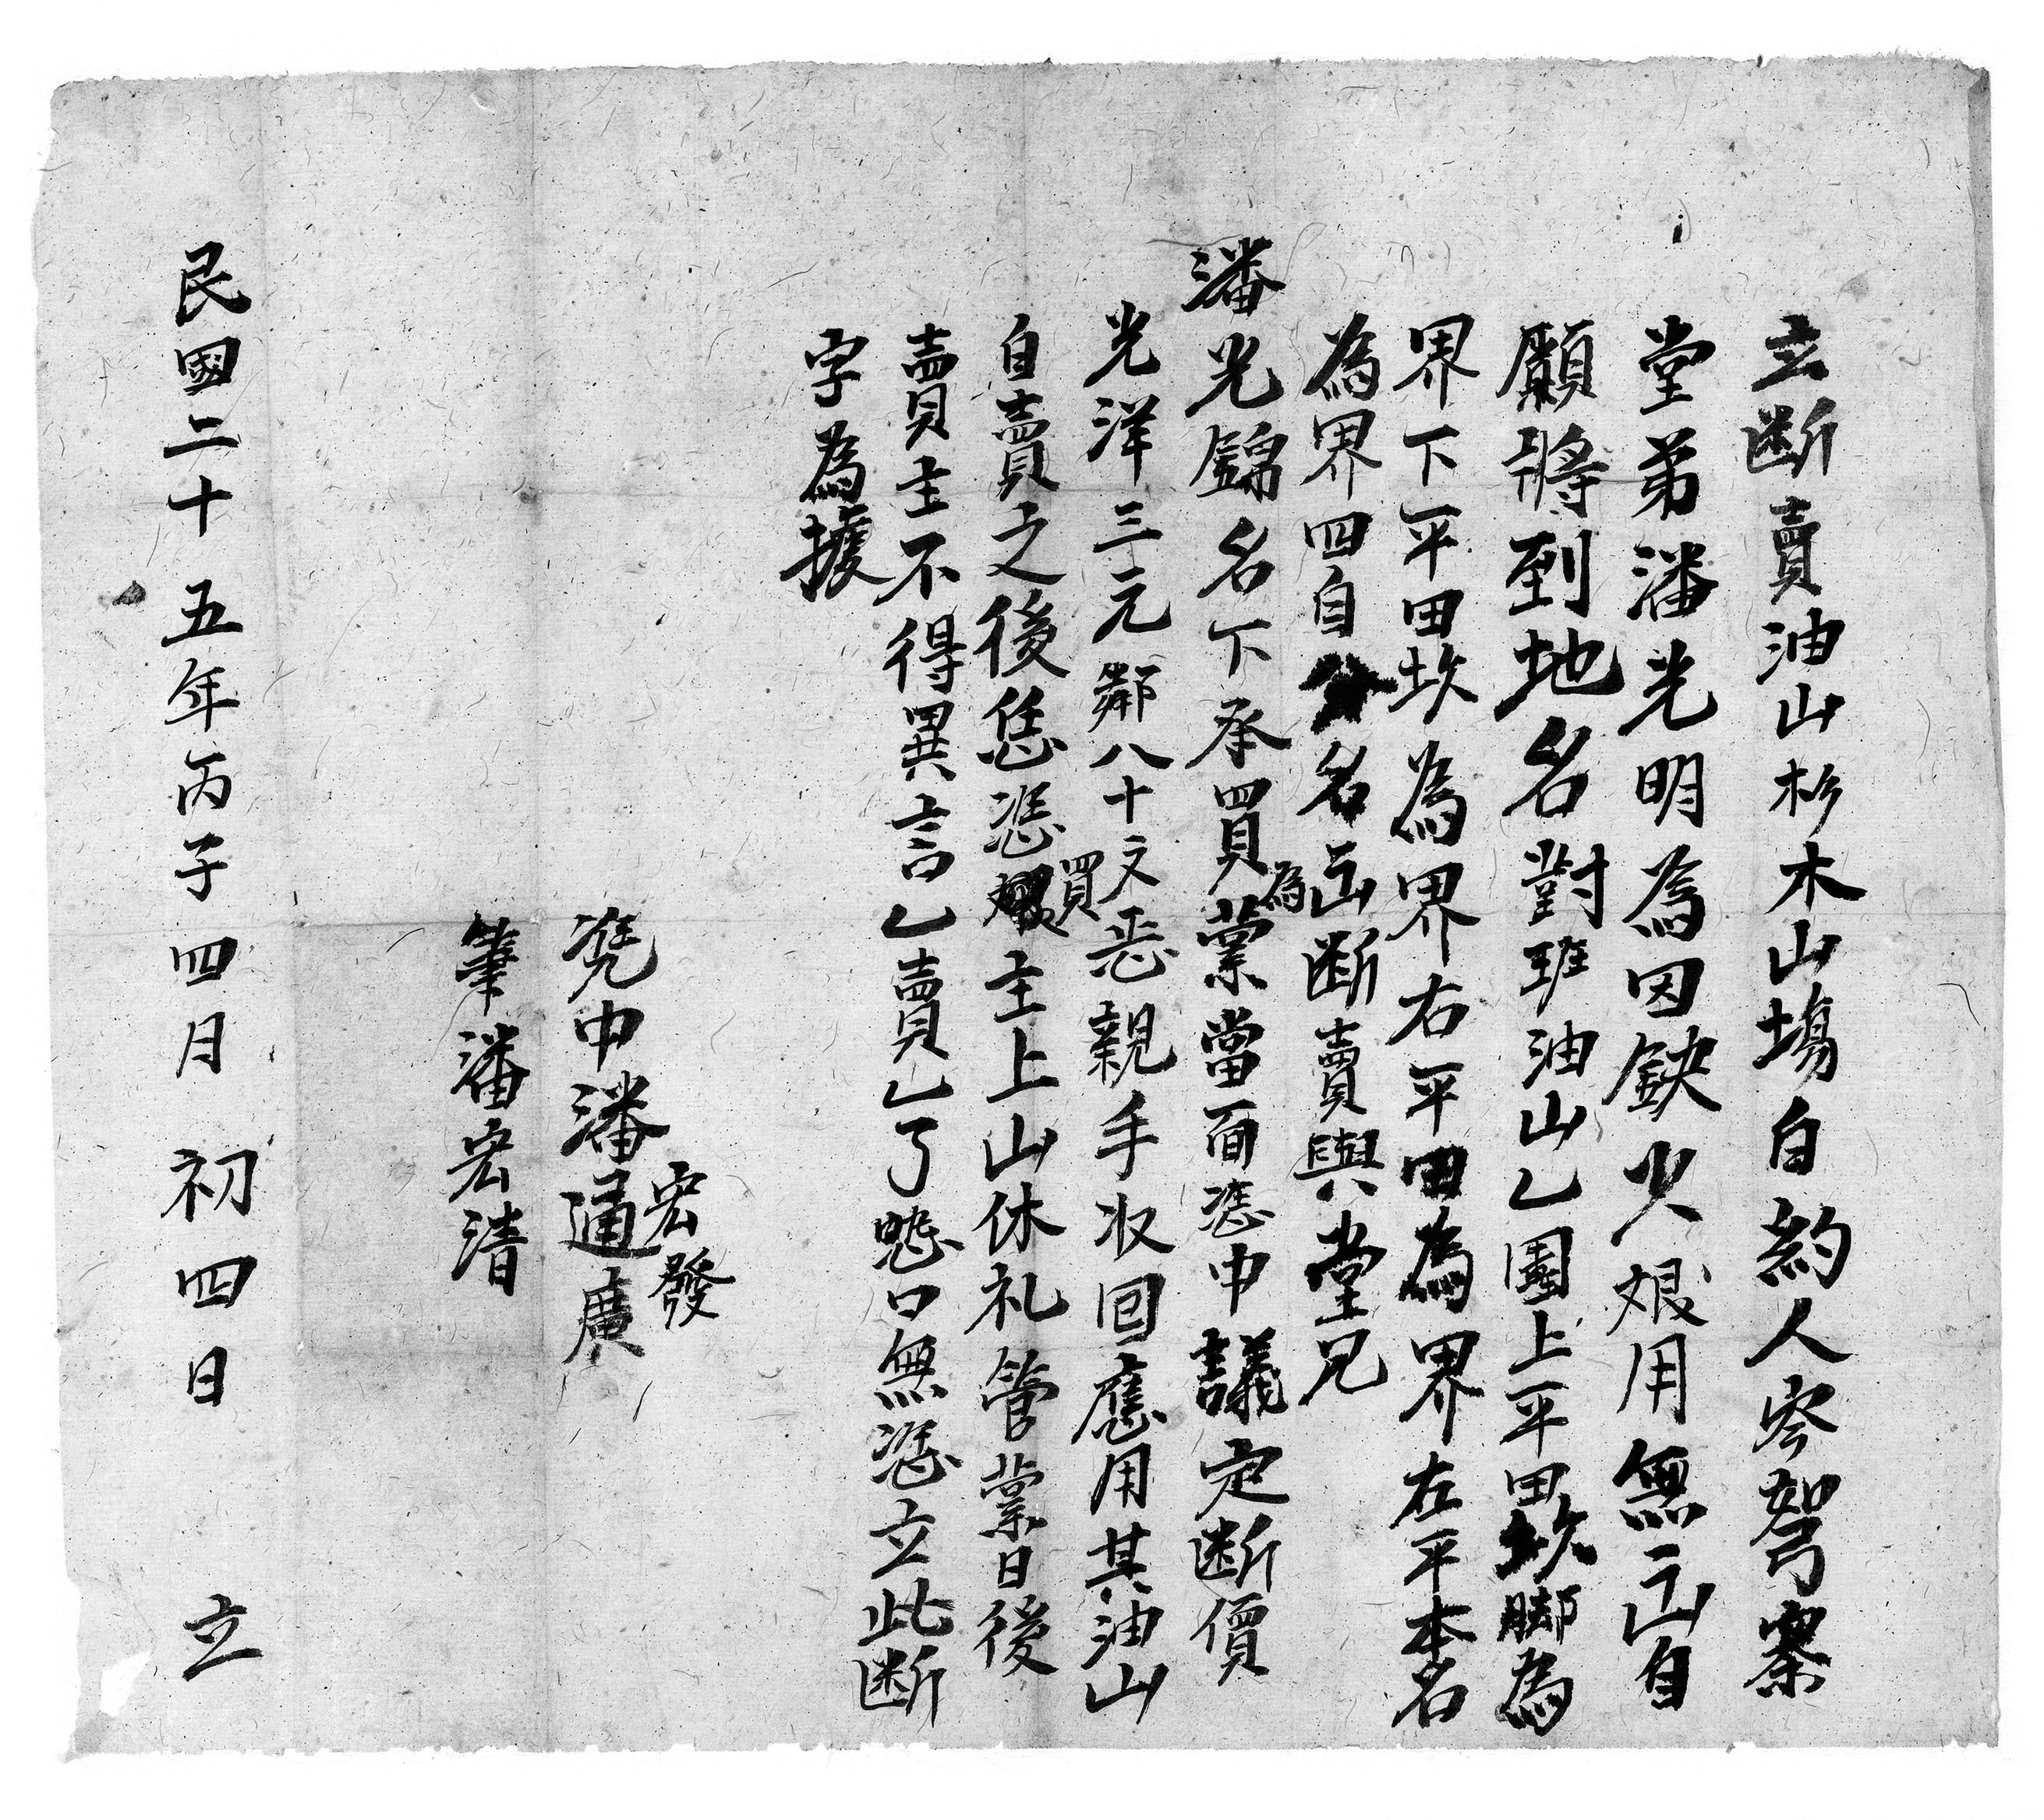 立断賣油山杉木山塲自約人岑努寨
堂弟潘光明為因缺少艰用無山自
願將到地名對班油山乙團上平田坎脚為
界下平田坎為界右平田為界左平本名
為界四自分名出断賣與堂兄
潘光錦名下承買為業當面憑中議定断價
光洋三元鄰八十文恶親手收回應用其油山
自賣之後恁憑買主上山休礼管業日後
賣主不得異言乙賣乙了恐口無憑立此断
字為據
宏發
凭中潘通廣
筆潘宏清
民國二十五年丙子四月初四日立